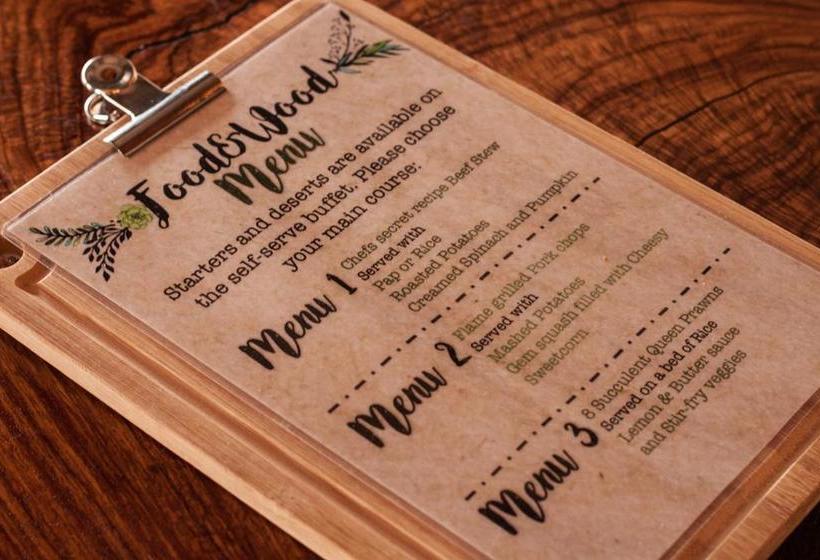 Food&Wood
Menu
Starters and deserts are available on
the self-serve buffet. Please choose
your main course:
Menu 1
Chefs secret recipe Beef Stew
Served with
Pap or Rice
Roasted Potatoes
Creamed Spinach and Pumpkin
Menu 2
Flame grilled Pork chops
Served with
Mashed Potatoes
Gem squash filled with Cheesy
Sweetcorn
Menu 3
8 Succulent Queen Prawns
Served on a bed of Rice
Lemon & Butter sauce
and Stir-fry veggies